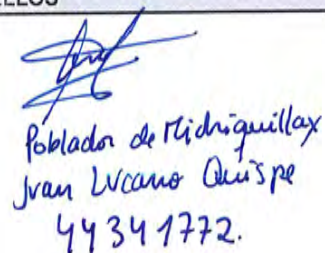 ELLOS
Poblador de Michiquillax
Juan Lucano Quispe
44341772.